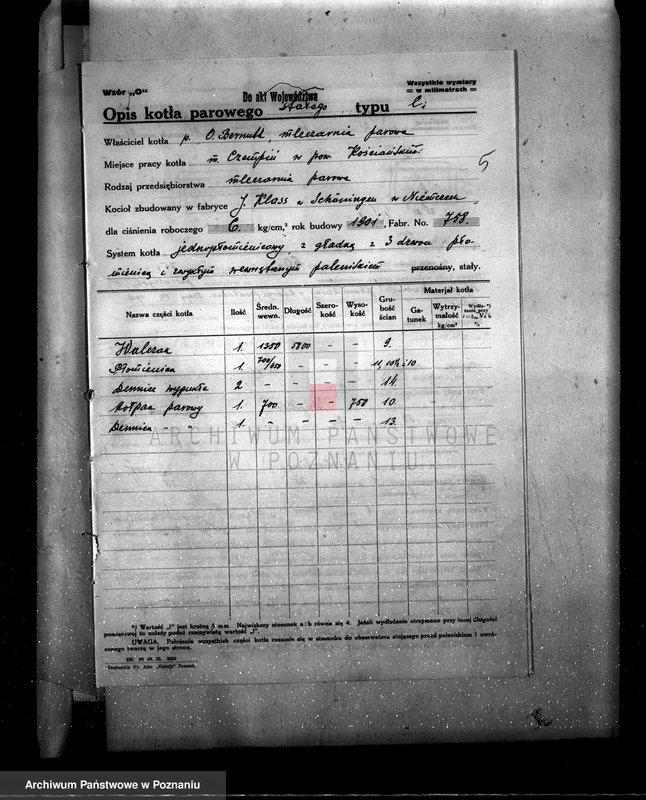 Wzór „C"
Do akt Województwa
Wszystkie wymiary
= w milimetrach =
Opis kotła parowego stałego typu
Właściciel kotła p. O. Bernuth, mleczarnia parowa
Miejsce pracy kotła m. Czempiń w pow. Kościańskim.
5
Rodzaj przedsiębiorstwa mleczarnia parowa
Kocioł zbudowany w fabryce J. Klass w Schöningen w Niemczech
dla ciśnienia roboczego 6. kg/cm,² rok budowy 1901, Fabr. No. 758
System kotła jednopłomienicowy z gładką z 3 dzwon pło-
mienicą i zwykłym wewnętrznym paleniskiem przenośny, stały.
Nazwa części kotła Ilość Średn. wewn. Długość Szero-kość Wyso-kość Gru-bość ścian Materjał kotła Ga-tunek Wytrzy-małość kg/cm²
Walczak 1. 1350 5800 – – 9.
Płomienica 1. 700/650 – – 11, 10½ i 10
Dennice wypukłe 2 – – – – 14.
Kołpak parowy 1. 700 – – 750 10.
Dennica " " 1. – – – – 13.
ARCHIWUM PAŃSTWOWE
W POZNANIU
*) Wartość „l" jest krotną 5 mm. Największy stosunek a : b równa się 4. Jeżeli wydłużenie otrzymano przy innej długości
pomiarowej to należy podać rzeczywistą wartość „l".
UWAGA. Położenie wszystkich części kotła rozumie się w stosunku do obserwatora stojącego przed paleniskiem i zwró-
conego twarzą w jego stronę.
Drukarnia Sp. Akc. „Ostoja" Poznań.
Archiwum Państwowe w Poznaniu